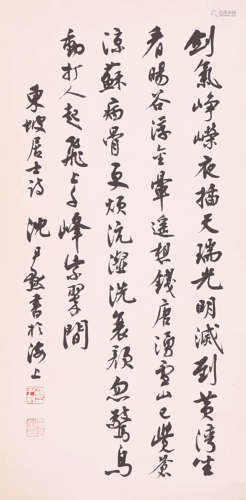 劍氣崢嶸夜插天瑞光明滅到黄灣坐
看暘谷浮金暈遥想錢唐湧雪山已覺蒼
涼蘇病骨更煩沆瀣洗衰顔忽驚鳥
動行人起飛上千峰紫翠間
東坡居士詩 沈尹默書於海上